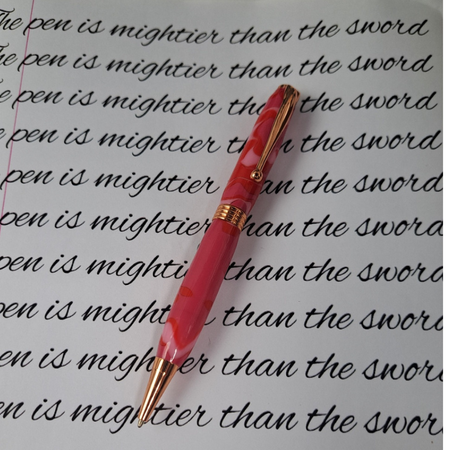 The pen is mightier than the sword
he pen is mightier than the sword
e pen is mightier tha the sword
e pen is mightier than the sword
pen is mightier an the sword
pen is mightier han the sword
pen is mighti than the sword
pen is mighti r than the sword
en is might er than the swor
en is mightier than the swor